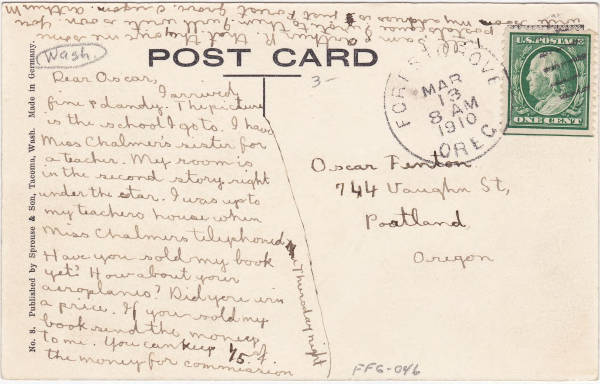 Wash.
POST CARD
3-
Dear Oscar,
I arrived
fine & dandy. The picture
is the school I go to. I have
Miss Chalmer's sister for
a teacher. My room is
in the second story, right
under the star. I was up to
my teachers house when
Miss Chalmers telephoned
on Thursday night
Have you sold my book
yet? How about your
aeroplanes? Did you win
a price. If you sold my
book send the money
to me. You can keep 15¢ of
the money for commission
FOREST GROVE
MAR
13
8 AM
1910
OREG.
U.S. POSTAGE
ONE CENT
Oscar Fenton
744 Vaughn St,
Portland,
Oregon
No. 8. Published by Sprouse & Son, Tacoma, Wash. Made in Germany.
FFG-046